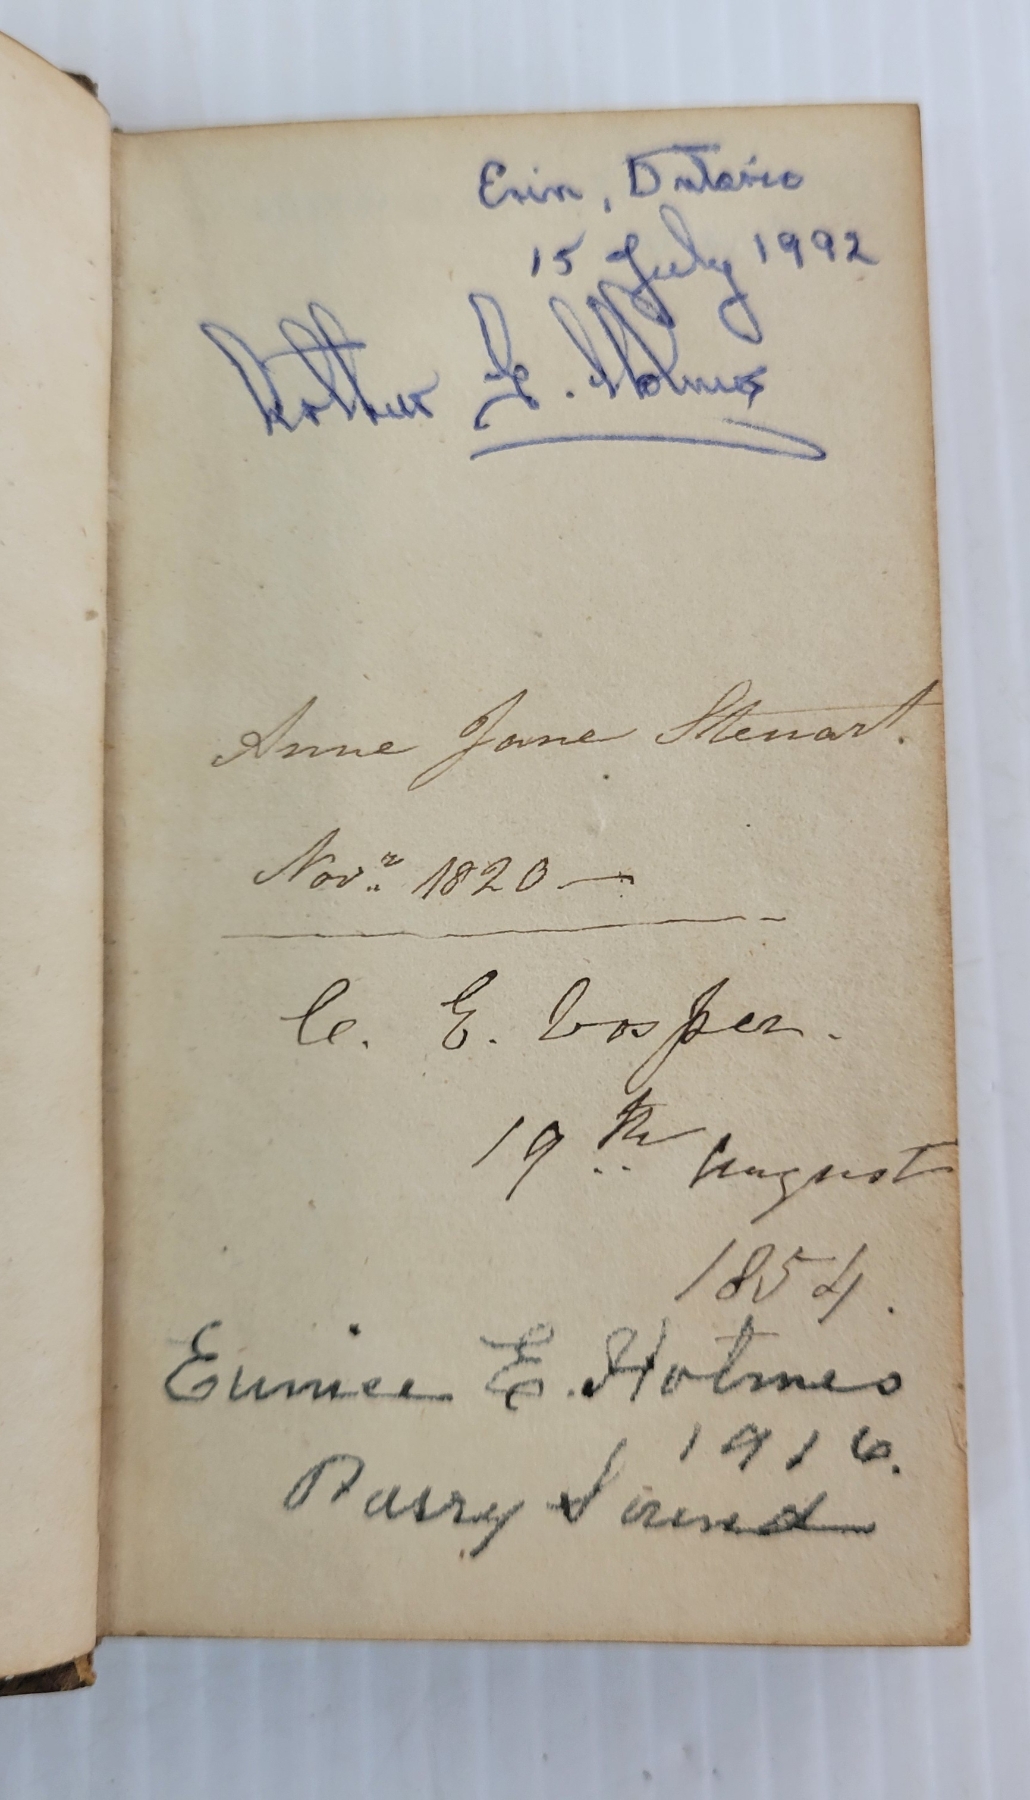 Erin, Ontario
15 July 1992
Arthur E. Holmes
Anne Jane Steuart.
Novr 1820 —
C. E. Cosper.
19th August
1854.
Eunice E. Holmes
1916.
Parry Sound